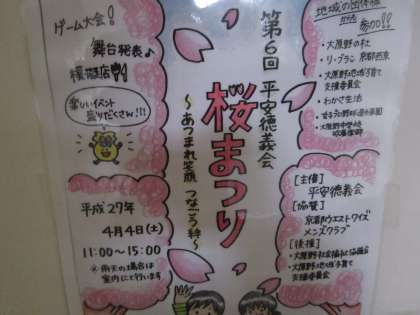 ゲーム大会!
舞台発表♪
模擬店
楽しいイベント
盛りだくさん!!!
平成27年
4月4日(土)
11:00〜15:00
※雨天の場合は
室内にて行います
第6回 平安徳義会
桜まつり
〜あつまれ笑顔 つなごう絆〜
参加!!
・大原野の杜
・リ・ブラン 京都西京
・大原野地域子育て
支援委員会
・わかさ生活
・大原野中学校
吹奏楽部
【主催】
平安徳義会
【協賛】
京都ウエストワイズ
メンズクラブ
【後援】
・大原野社会福祉協議会
・大原野地域子育て
支援委員会